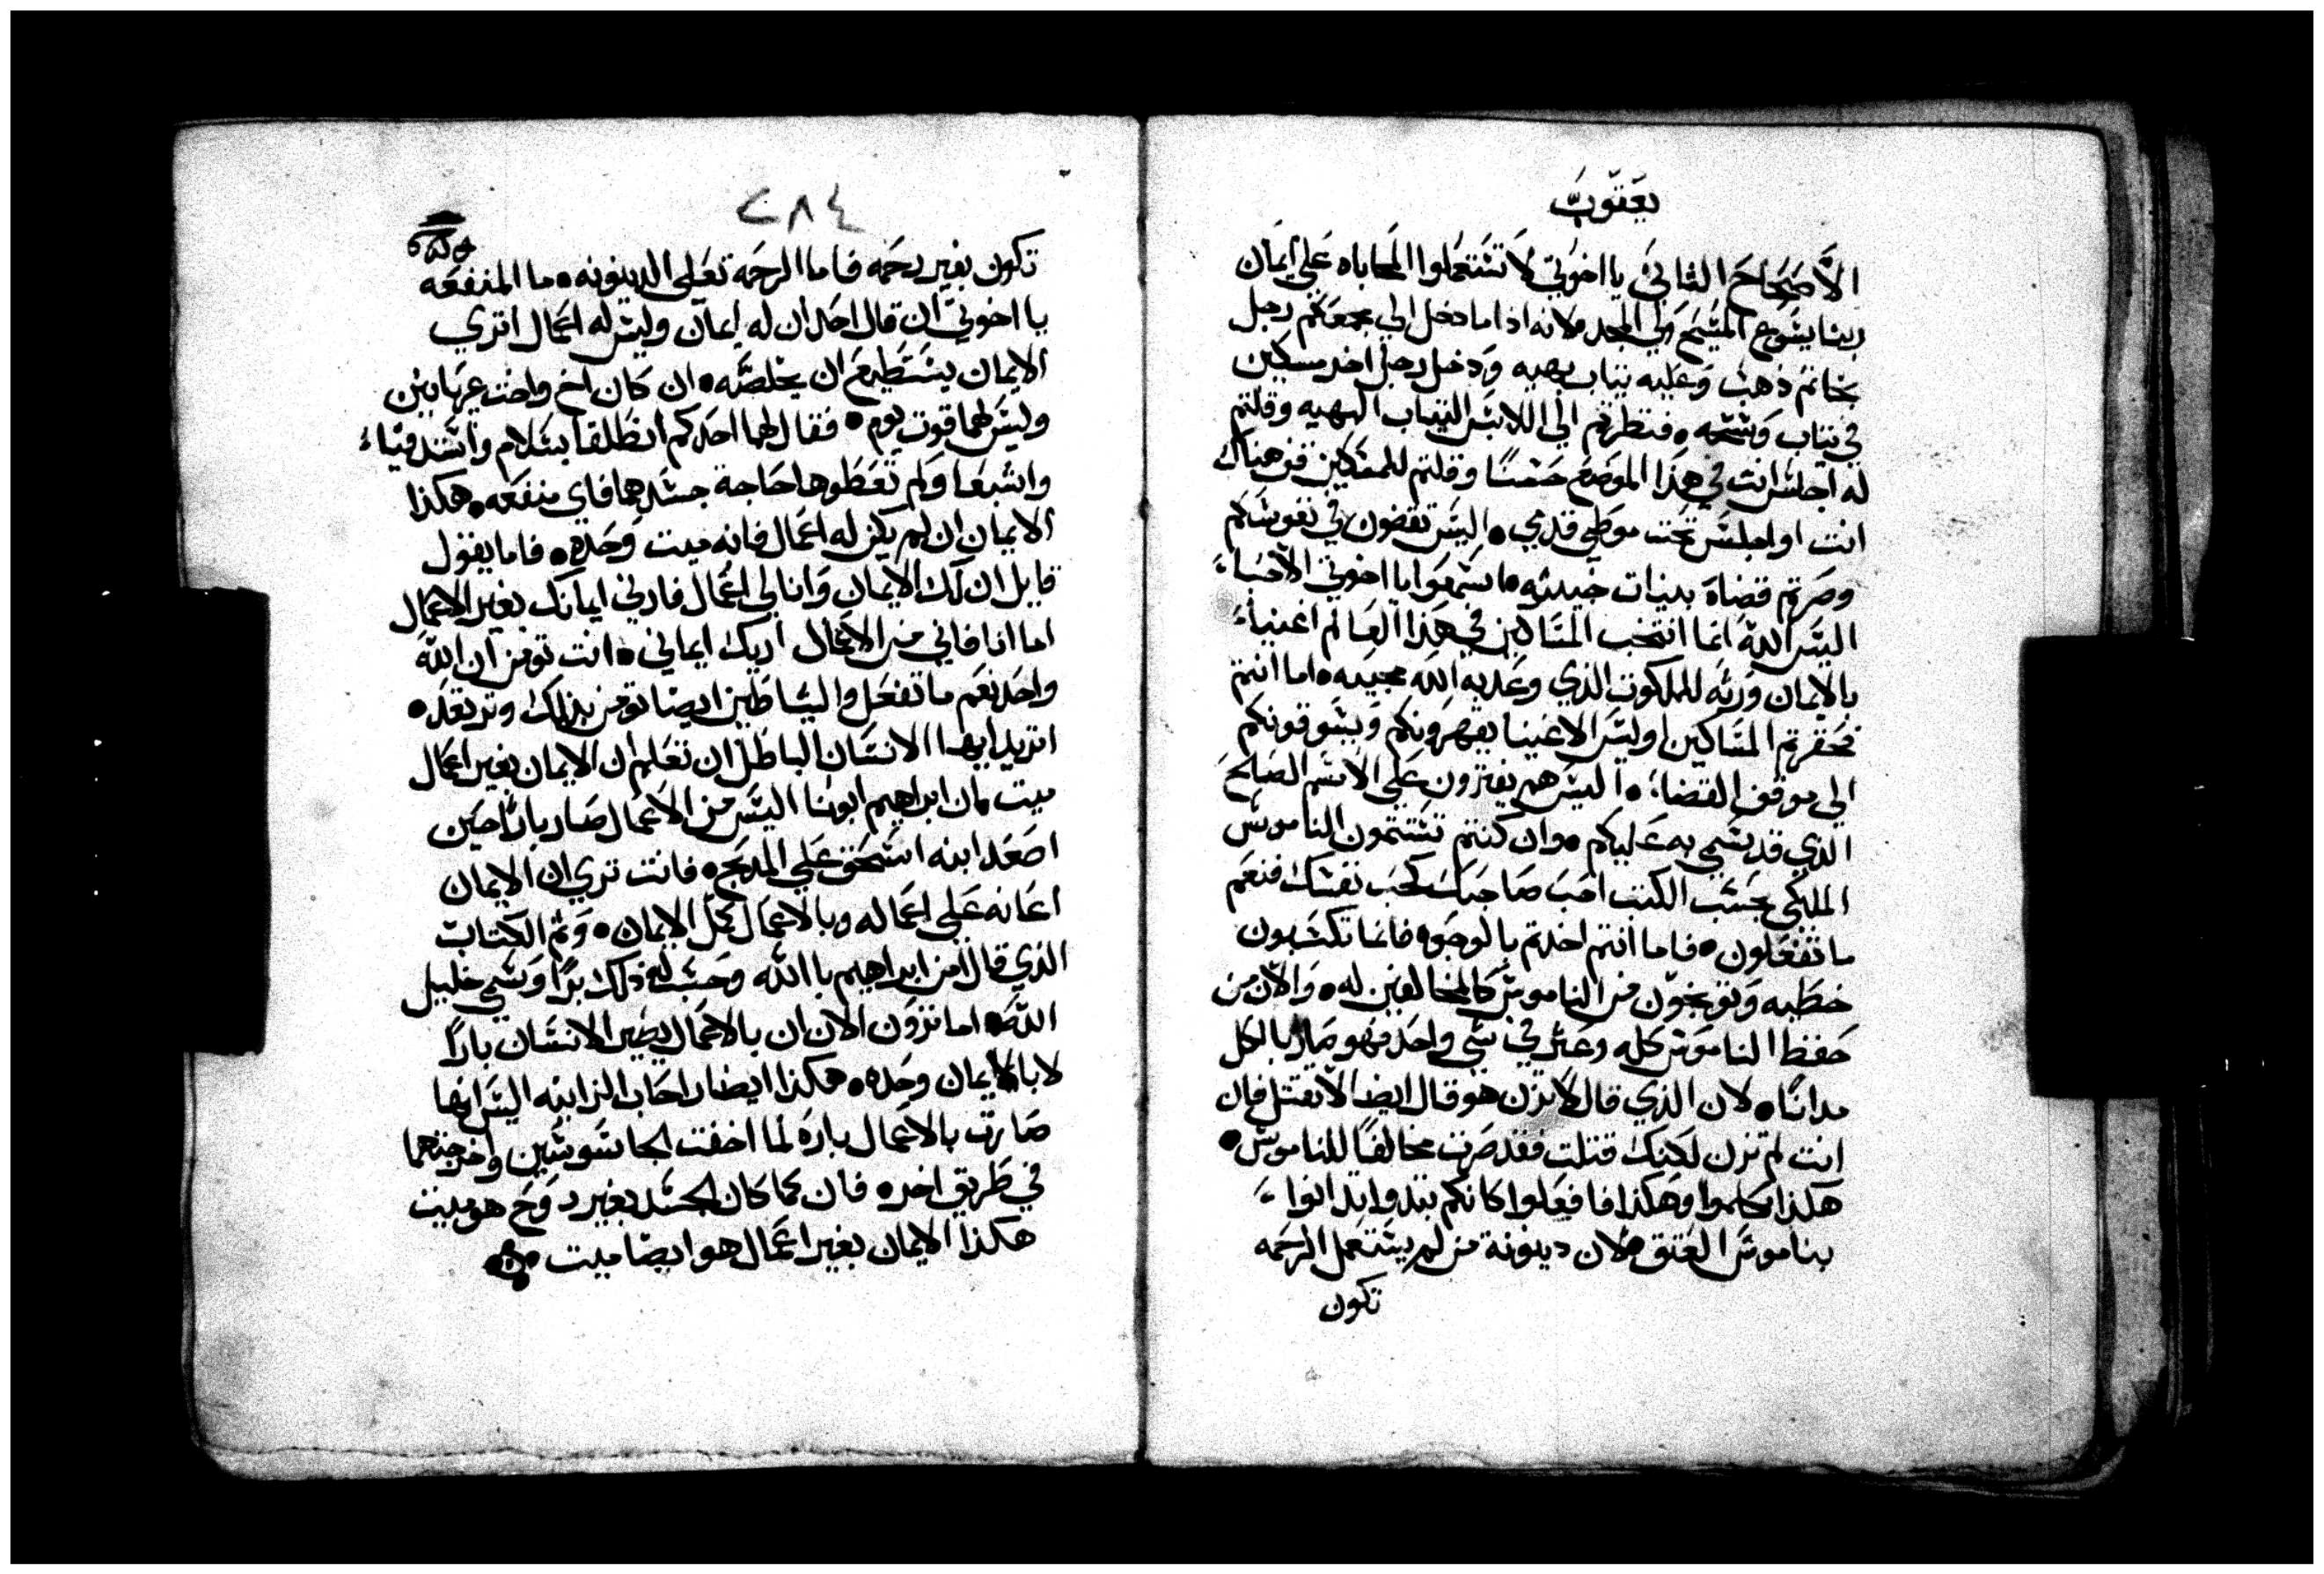 يعقوب
الاصحاح الثاني يا اخوتي لا تستعملوا المحاباه علي ايمان
ربنا يسوع المسيح ولي المجد لانه اذا ما دخل الي مجمعكم رجل
بخاتم ذهب وعليه ثياب بهيه ودخل رجل اخر مسكين
في ثياب وسخه فنظرتم الي اللابس الثياب البهيه وقلتم
له اجلس انت في هذا الموضع حسنًا وقلتم للمسكين قف هناك
انت او اجلس تحت موطي قدمي اليس تقضون في نفوسكم
وصرتم قضاه بنيات خبيثه ما سمعوا يا اخوتي الاحباء
اليس الله انما انتخب المساكين في هذا العالم اغنياء
بالايمان ورثه للملكوت الذي وعد به الله محبيه اما انتم
فحقرتم المساكين اوليس الاغنيا يقهرونكم ويسوقونكم
الي موقف القضاء اليس هم يفترون علي الاسم الصالح
الذي قد سمي به عليكم وان كنتم تتمون الناموس
الملكي بحسب الكتب احب صاحبك كحب نفسك فنعم
ما تفعلون فاما انتم اخدتم بالوجوه فانما تكسبون
خطيه وتوبخون من الناموس كالمخالفين له والان من
حفظ الناموس كله وعثر في شي واحد فهو صار بالكل
مدانًا لان الذي قال لا تزن هو قال ايضا لا تقتل فان
انت لم تزن لكنك قتلت فقد صرت مخالفًا للناموس
هكذا كلموا وهكذا فافعلوا كانكم بتدوا تدانوا
بناموس العتق لان دينونة من لم يستعمل الرحمه
تكون
٢٨٤
تكون بغير رحمه فاما الرحمه تعلي الدينونه ما المنفعه
يا اخوتي ان قال احد ان له ايمان وليس له اعمال اتري
الايمان يستطيع ان يخلصه ان كان اخ واخت عريانين
وليس لهما قوت يوم فقال لهما احدكم انطلقا بسلام واستدفياء
واشبعا ولم تعطوها حاجة جسدهما فاي منفعه هكذا
الايمان ان لم يكن له اعمال فانه ميت وحده فاما يقول
قايل ان لك الايمان وانا لي اعمال فارني ايمانك بغير الاعمال
اما انا فاني من الاعمال اريك ايماني انت تومن ان الله
واحد نعم ما تفعل والشياطين ايضا تومن بذلك وترتعد
اتريد ايها الانسان الباطل ان تعلم ان الايمان بغير اعمال
ميت لان ابراهيم ابونا اليس من الاعمال صار بارًا حين
اصعد ابنه اسحق علي المدبح فانت تري ان الايمان
اعانه علي اعماله وبالاعمال كمل الايمان وتم الكتاب
الذي قال امن ابراهيم باالله وحسب له ذلك برًا وسمي خليل
الله اما تزون الان ان بالاعمال يصير الانسان بارًا
لا بالايمان وحده هكذا ايضا راحاب الزانيه اليس انها
صارت بالاعمال باره لما اخفت الجاسوسين واخرجتهما
في طريق اخره فان كما كان الجسد بغير روح هو ميت
هكذا الايمان بغير اعمال هو ايضا ميت